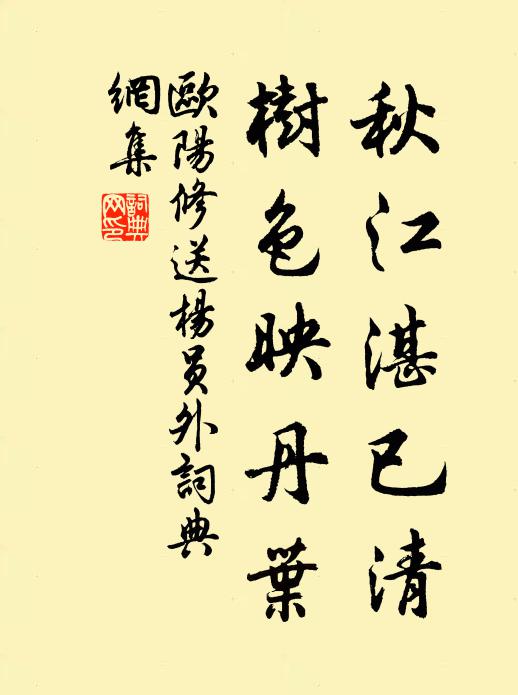 秋江湛已清
樹色映丹葉
歐陽修送楊員外詞典
網集
詞典
网印